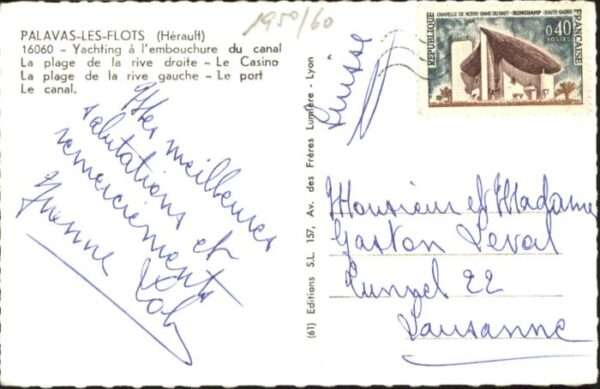 PALAVAS-LES-FLOTS (Hérault)
16060 - Yachting à l'embouchure du canal
La plage de la rive droite - Le Casino
La plage de la rive gauche - Le port
Le canal.
1950/60
Mes meilleures
salutations et
remerciements
Yvonne
Suisse
(61) Editions S.L. 157, Av. des Frères Lumière - Lyon
CHAPELLE DE NOTRE-DAME DU HAUT - RONCHAMP (HAUTE-SAÔNE)
REPUBLIQUE
FRANÇAISE
0,40
POSTES
Monsieur et Madame
Gaston Leval
22
Lausanne